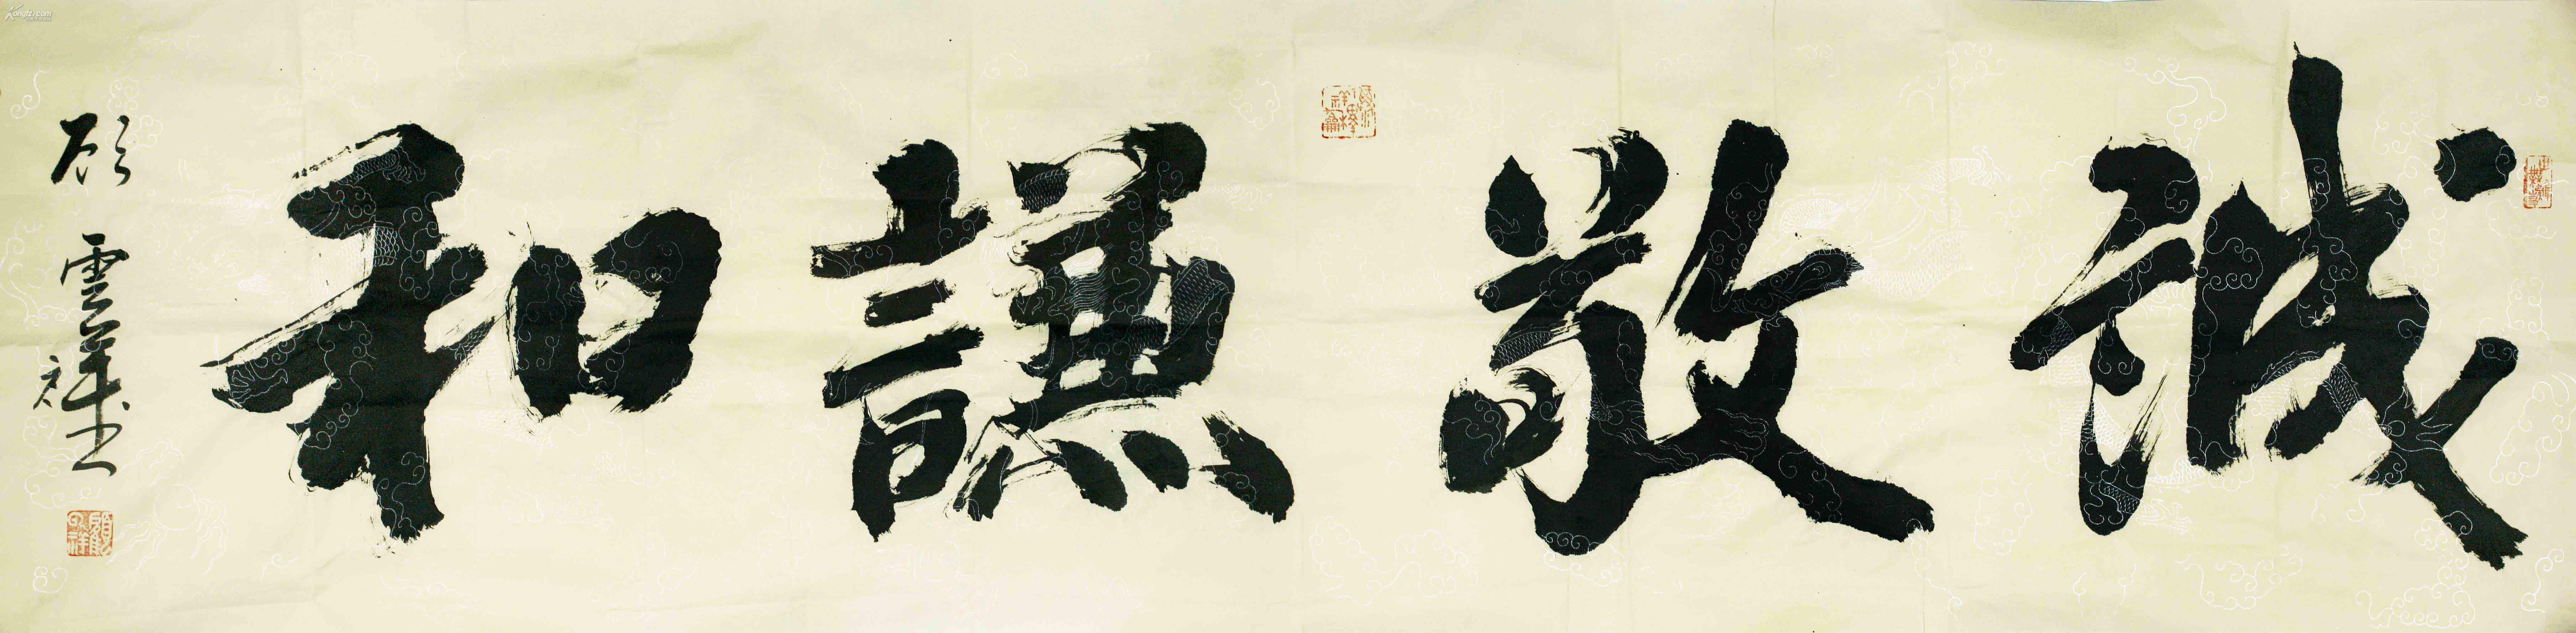 誠敬謙和
顧雲祥書
Kongfz.com